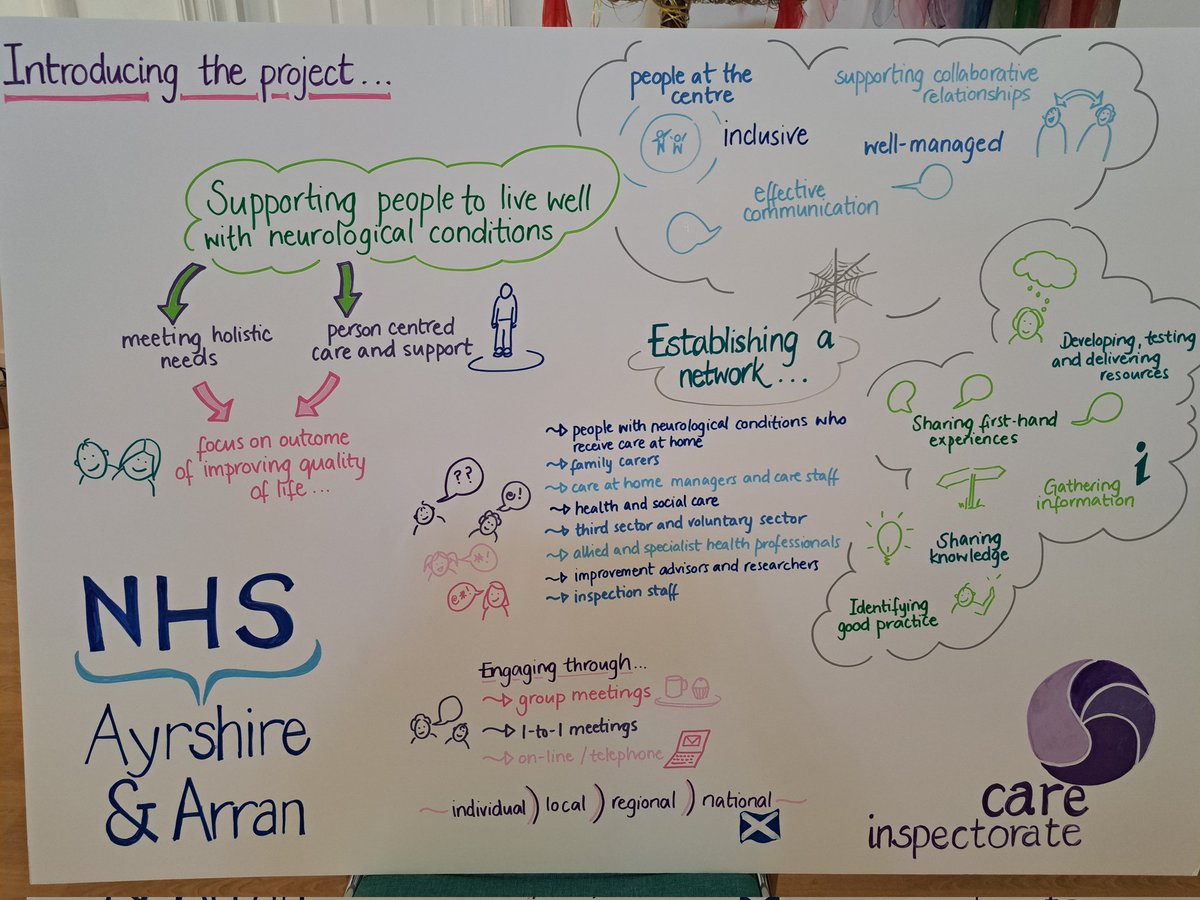 Introducing the project...
Supporting people to live well
with neurological conditions
meeting holistic
needs
person centred
care and support
focus on outcome
of improving quality
of life...
NHS
Ayrshire
& Arran
people at the
centre
supporting collaborative
relationships
inclusive
well-managed
effective
communication
Establishing a
network...
people with neurological conditions who
receive care at home
family carers
care at home managers and care staff
health and social care
third sector and voluntary sector
allied and specialist health professionals
improvement advisors and researchers
inspection staff
??
@!
*!
@*!
Engaging through...
group meetings
1-to-1 meetings
on-line / telephone
individual ) local ) regional ) national
Developing, testing
and delivering
resources
Sharing first-hand
experiences
Gathering
information
i
Sharing
knowledge
Identifying
good practice
care
inspectorate